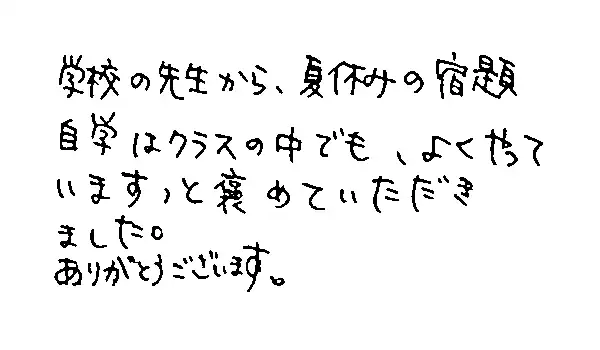 学校の先生から、夏休みの宿題
自学はクラスの中でも、よくやって
います、と褒めていただき
ました。
ありがとうございます。